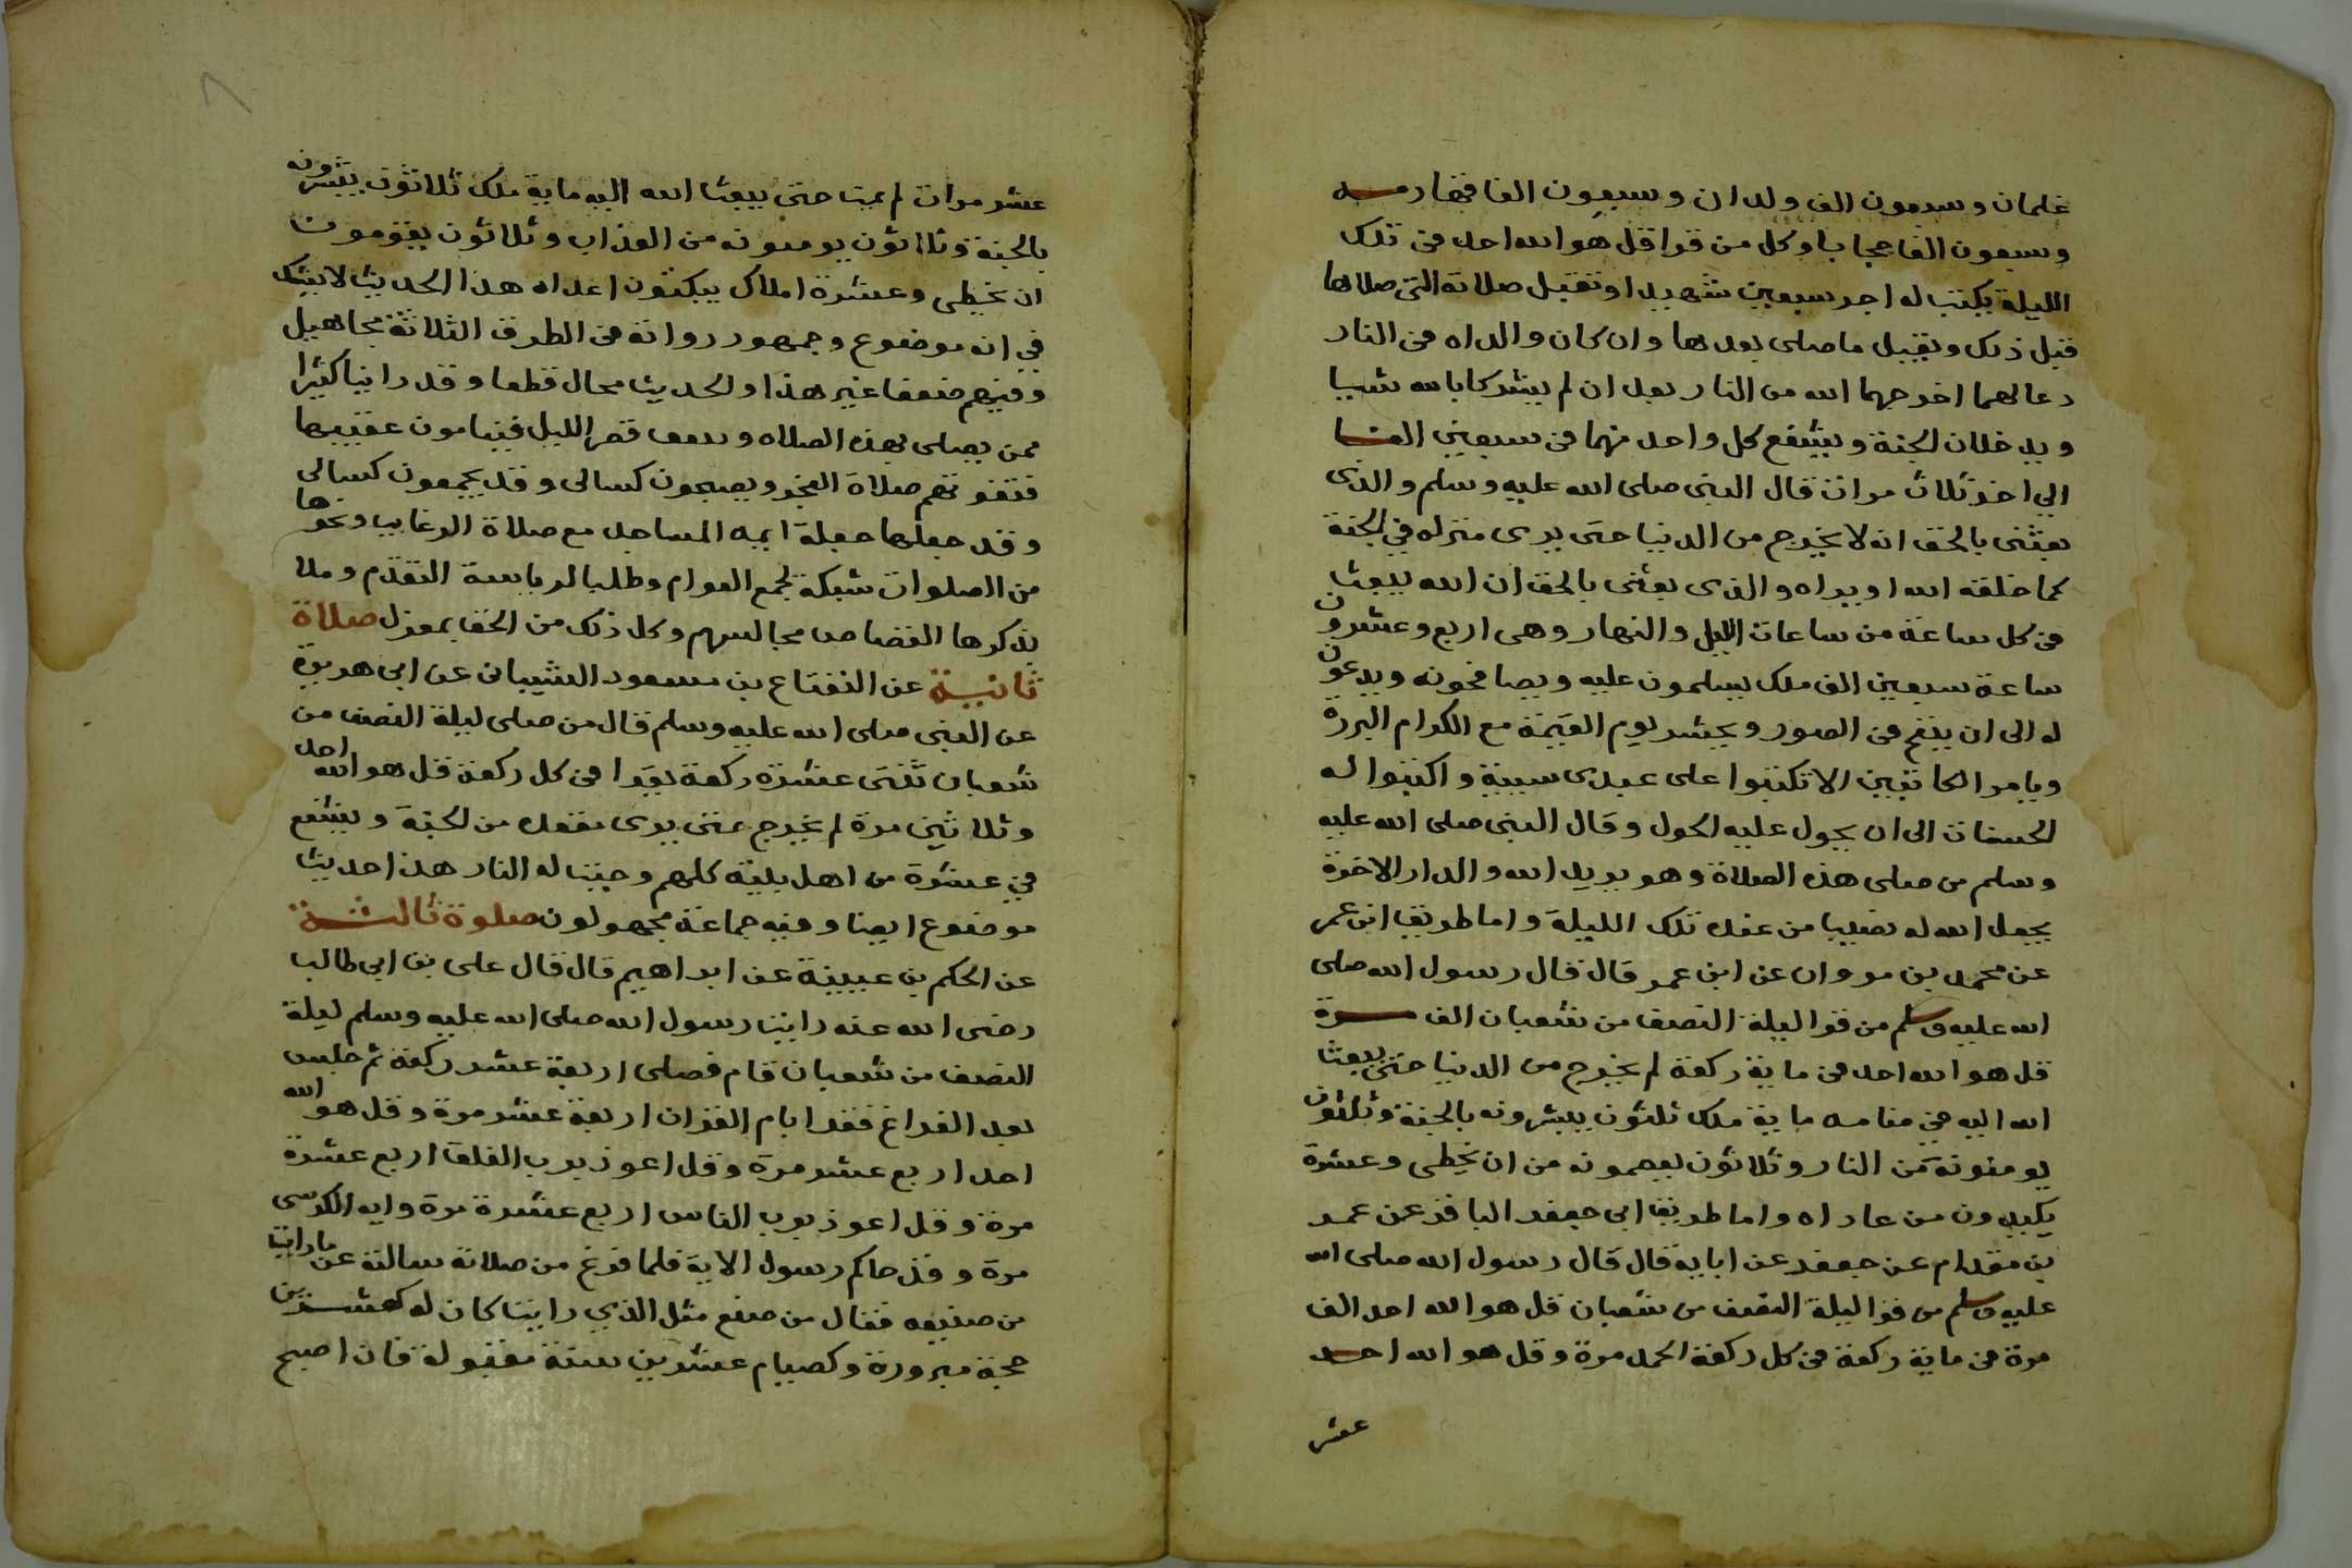 غلمان وسبعون الف ولدان وسبعون الفا قهارمه
وسبعون الفا حجابا وكل من قرا قل هو الله احد في تلك
الليلة يكتب له اجر سبعين شهيدا وتقبل صلاته التي صلاها
قبل ذلك ويقبل ما صلى بعدها وان كان والداه في النار
دعا لهما اخرجهما الله من النار بعد ان لم يشركا بالله شيا
ويدخلان الجنة ويشفع كل واحد منهما في سبعين الفا
الي اخر ثلاث مرات قال النبي صلى الله عليه وسلم والذي
بعثني بالحق انه لا يخرج من الدنيا حتى يرى منزله في الجنة
كما خلقه الله او يراه والذى بعثني بالحق ان الله يبعث
في كل ساعة من ساعات الليل والنهار وهي اربع وعشرون
ساعة سبعين الف ملك يسلمون عليه ويصافحونه ويدعون
له الى ان ينفخ في الصور ويحشر يوم القيمة مع الكرام البررة
ويامر الكاتبين الا تكتبوا على عبدى سيئة واكتبوا له
الحسنات الى ان يحول عليه الحول وقال النبي صلى الله عليه
وسلم من صلى هذه الصلاة وهو يريد الله والدار الاخرة
يجعل الله له نصيبا من عنده تلك الليلة واما طريق ابن عمر
عن محمد بن مروان عن ابن عمر قال قال رسول الله صلى
الله عليه وسلم من قرا ليلة النصف من شعبان الف مرة
قل هو الله احد في ماية ركعة لم يخرج من الدنيا حتى يبعث
الله اليه في منامه ماية ملك ثلثون يبشرونه بالجنة وثلثون
يومنونه من النار وثلاثون يعصمونه من ان يخطى وعشرة
يكيدون من عاداه واما طريق ابي جعفر الباقر عن عمر
بن مقدام عن جعفر عن ابايه قال قال رسول الله صلى الله
عليه وسلم من قرا ليلة النصف من شعبان قل هو الله احد الف
مرة في ماية ركعة في كل ركعة الحمد مرة وقل هو الله احد
عشر
عشر مرات لم يمت حتى يبعث الله اليه ماية ملك ثلاثون يبشرونه
بالجنة وثلاثون يومنونه من العذاب وثلاثون يقومونه
ان يخطى وعشرة املاك يبكتون اعداه هذا الحديث لا يشك
في انه موضوع وجمهور رواته في الطرق الثلاثة مجاهيل
وفيهم ضعفا غير هذا والحديث محال قطعا وقد راينا كثيرا
ممن يصلى بهذه الصلاه قصر الليل فينامون عقيبها
فتفوتهم صلاة الفجر ويصبحون كسالى وقد يجمعون كسالى
وقد جعلها جهلة ايمه المساجد مع صلاة الرغايب ونحوها
من الصلوات شبكة لجمع العوام وطلبا لرياسة التقدم وملا
بذكرها القصاص مجالسهم وكل ذلك من الحق بمعزل صلاة
ثانية عن القعقاع بن مسعود الشيباني عن ابي هريرة
عن النبي صلى الله عليه وسلم قال من صلى ليلة النصف من
شعبان ثنتى عشرة ركعة يقرا في كل ركعة قل هو الله احد
وثلاثين مرة لم يخرج حتى يرى مقعده من الجنة ويشفع
في عشرة من اهل بيته كلهم وجبت له النار هذا حديث
موضوع ايضا وفيه جماعة مجهولون صلوة ثالثة
عن الحكم بن عيينة عن ابراهيم قال قال على بن ابي طالب
رضى الله عنه رايت رسول الله صلى الله عليه وسلم ليلة
النصف من شعبان قام فصلى اربعة عشر ركعة ثم جلس
بعد الفراغ فقرا بام القران اربعة عشر مرة وقل هو الله
احد اربع عشر مرة وقل اعوذ برب الفلق اربع عشرة
مرة وقل اعوذ برب الناس اربع عشرة مرة وايه الكرسى
مرة وقد جاكم رسول الاية فلما فرغ من صلاته سالته عن ما رايت
من صنيعه فقال من صنع مثل الذي رايت كان له كعشرين
حجة مبرورة وكصيام عشرين سنة مقبولة فان اصبح